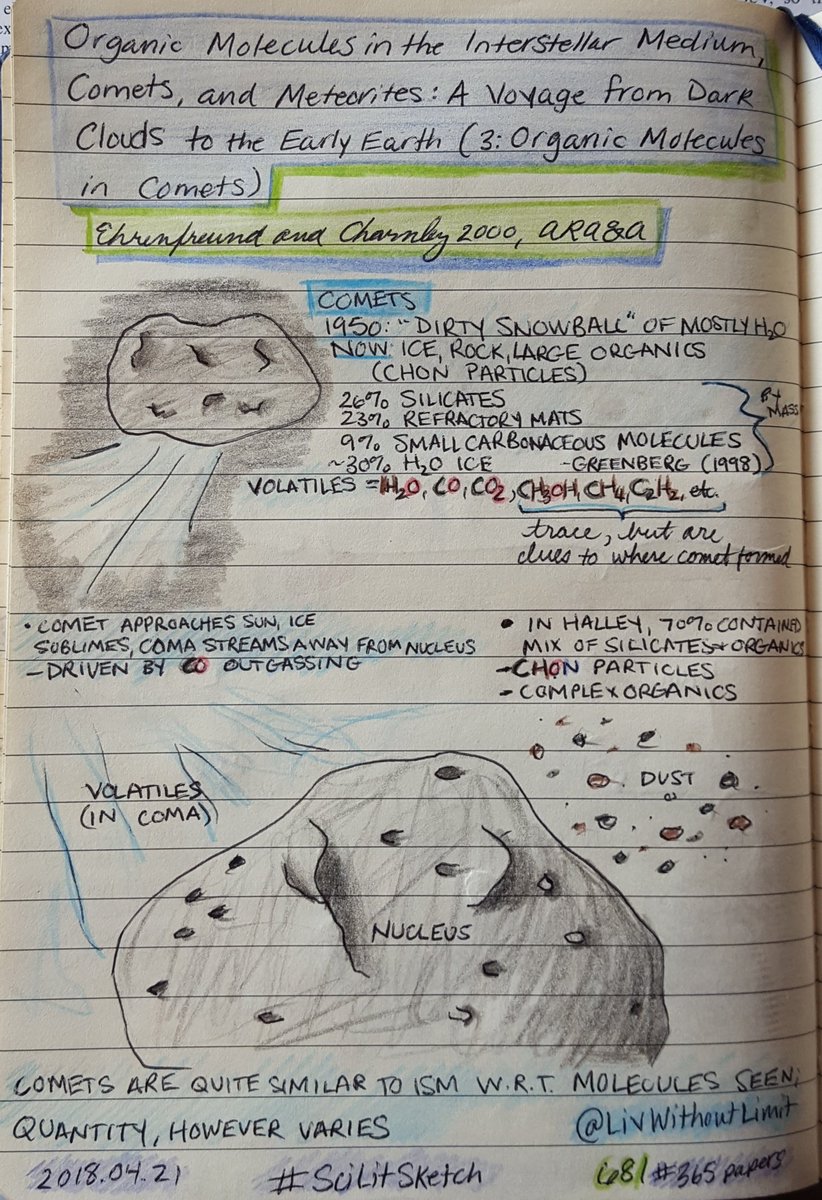 Organic Molecules in the Interstellar Medium,
Comets, and Meteorites: A Voyage from Dark
Clouds to the Early Earth (3: Organic Molecules
in Comets)
Ehrenfreund and Charnley 2000, ARA&A
COMETS
1950: "DIRTY SNOWBALL" OF MOSTLY H₂O
NOW: ICE, ROCK, LARGE ORGANICS
(CHON PARTICLES)
26% SILICATES
23% REFRACTORY MATS
9% SMALL CARBONACEOUS MOLECULES
~30% H₂O ICE -GREENBERG (1998)
BY
MASS
VOLATILES = H₂O, CO, CO₂, CH₃OH, CH₄, C₂H₂, etc.
trace, but are
clues to where comet formed
• COMET APPROACHES SUN, ICE
SUBLIMES, COMA STREAMS AWAY FROM NUCLEUS
- DRIVEN BY CO OUTGASSING
• IN HALLEY, 70% CONTAINED
MIX OF SILICATES + ORGANICS
- CHON PARTICLES
- COMPLEX ORGANICS
VOLATILES
(IN COMA)
DUST
NUCLEUS
COMETS ARE QUITE SIMILAR TO ISM W.R.T. MOLECULES SEEN;
QUANTITY, HOWEVER VARIES
@LivWithoutLimit
2018.04.21 #SciLitSketch 68/#365papers